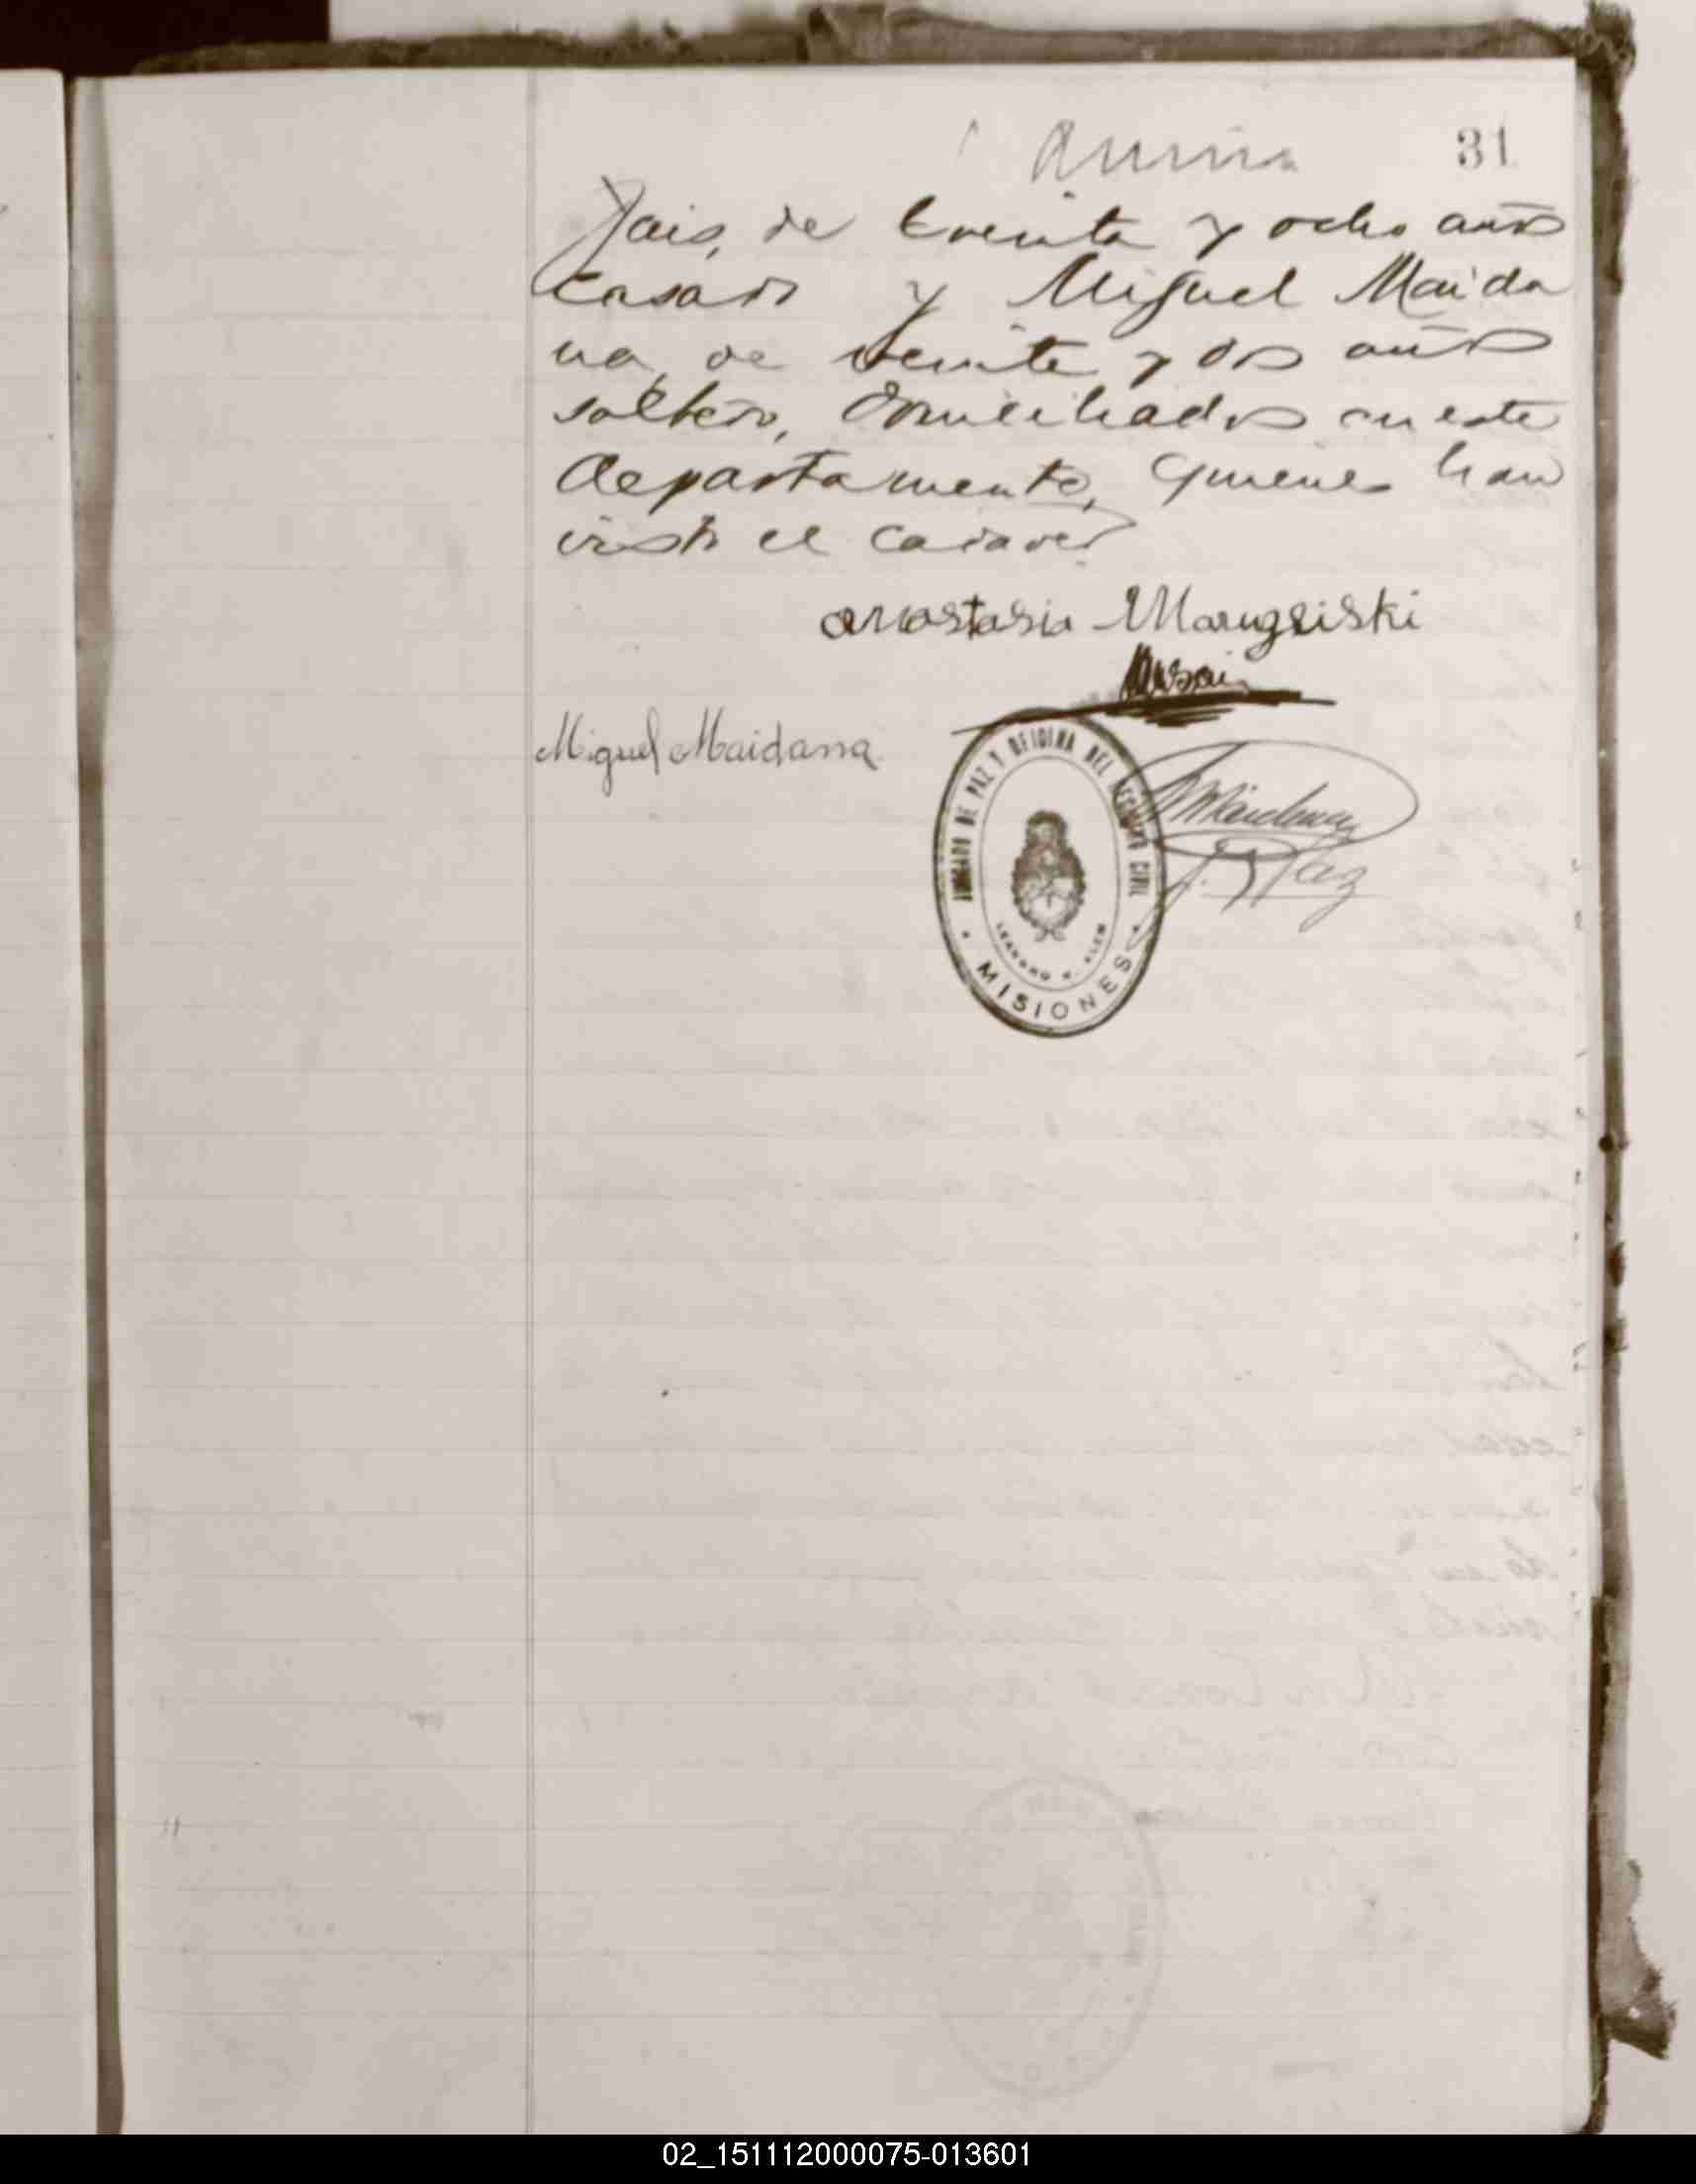 31
Pais, de treinta y ocho años
casado y Miguel Maida
na, de veinte y dos años
soltero, domiciliados en este
departamento, quienes han
visto el cadaver
Anastasia Marugeiski
Miguel Maidana
JUZGADO DE PAZ Y OFICINA DEL REGISTRO CIVIL
LEANDRO N. ALEM
MISIONES
J. Paz
02_151112000075-013601